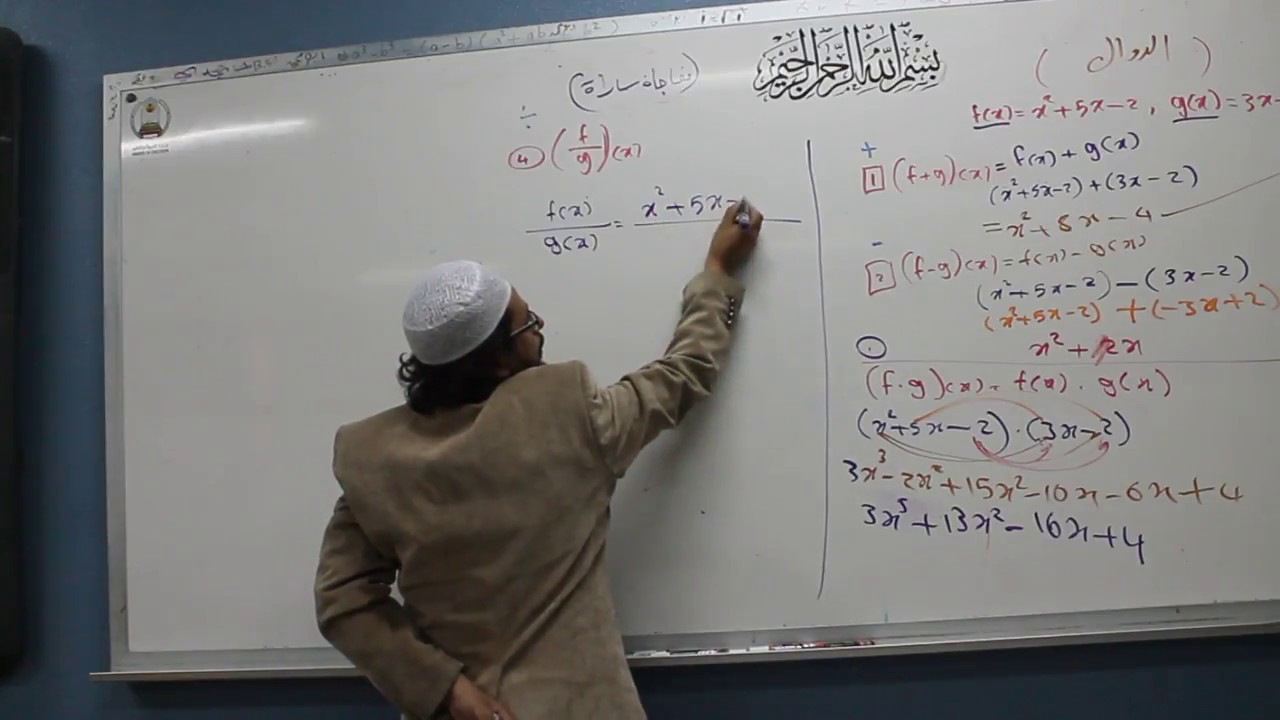 بسم الله الرحمن الرحيم
( الدوال )
f(x) = x² + 5x - 2 , g(x) = 3x
+
1 (f+g)(x) = f(x) + g(x)
(x²+5x-2) + (3x-2)
= x² + 8x - 4
-
2 (f-g)(x) = f(x) - g(x)
(x²+5x-2) - (3x-2)
(x²+5x-2) + (-3x+2)
x² + 2x
(f·g)(x) = f(x) · g(x)
(x²+5x-2) · (3x-2)
3x³ - 2x² + 15x² - 10x - 6x + 4
3x³ + 13x² - 16x + 4
(مفاجاة سارة)
÷
4 (f/g)(x)
f(x)/g(x) = x² + 5x -